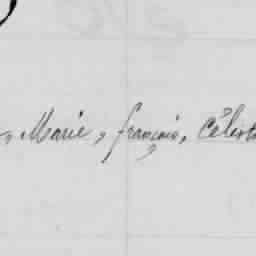 , Marie, françois, Célest